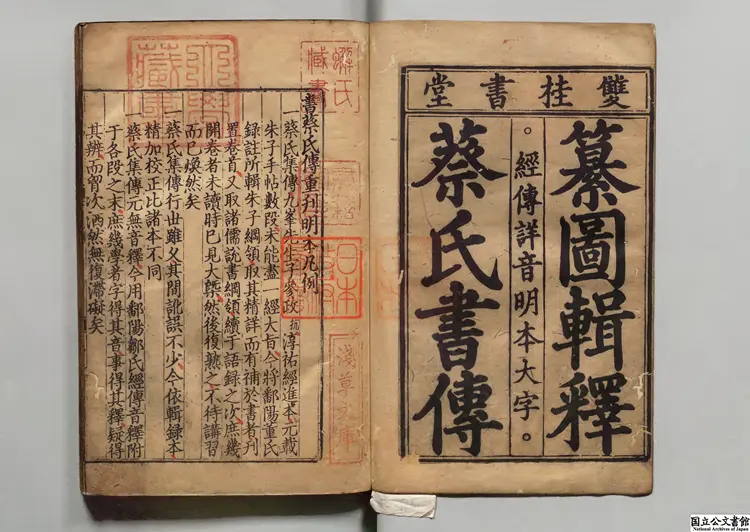 雙桂書堂
纂圖輯釋
。經傳詳音明本大字。
蔡氏書傳
書蔡氏傳重刊明本凡例
一蔡氏集傳九峯先生子參政抗淳祐經進本元載
朱子手帖數段未能盡一經大旨今將鄱陽董氏
錄註所輯朱子綱領取其精詳而有補於書者刊
置卷首又取諸儒說書綱領續于語錄之次庶幾
開卷者未讀時已見大槩然後復熟之不待講習
而已煥然矣
一蔡氏集傳行世雖久其間訛誤不少今依輯錄本
精加校正比諸本不同
一蔡氏集傳元無音釋今用鄱陽鄒氏經傳音釋附
于各段之末庶幾學者字得其音事得其釋疑得
其辨而胷次洒然無復滯礙矣
氏藏書
日本
淺草文庫
国立公文書館
National Archives of Japan